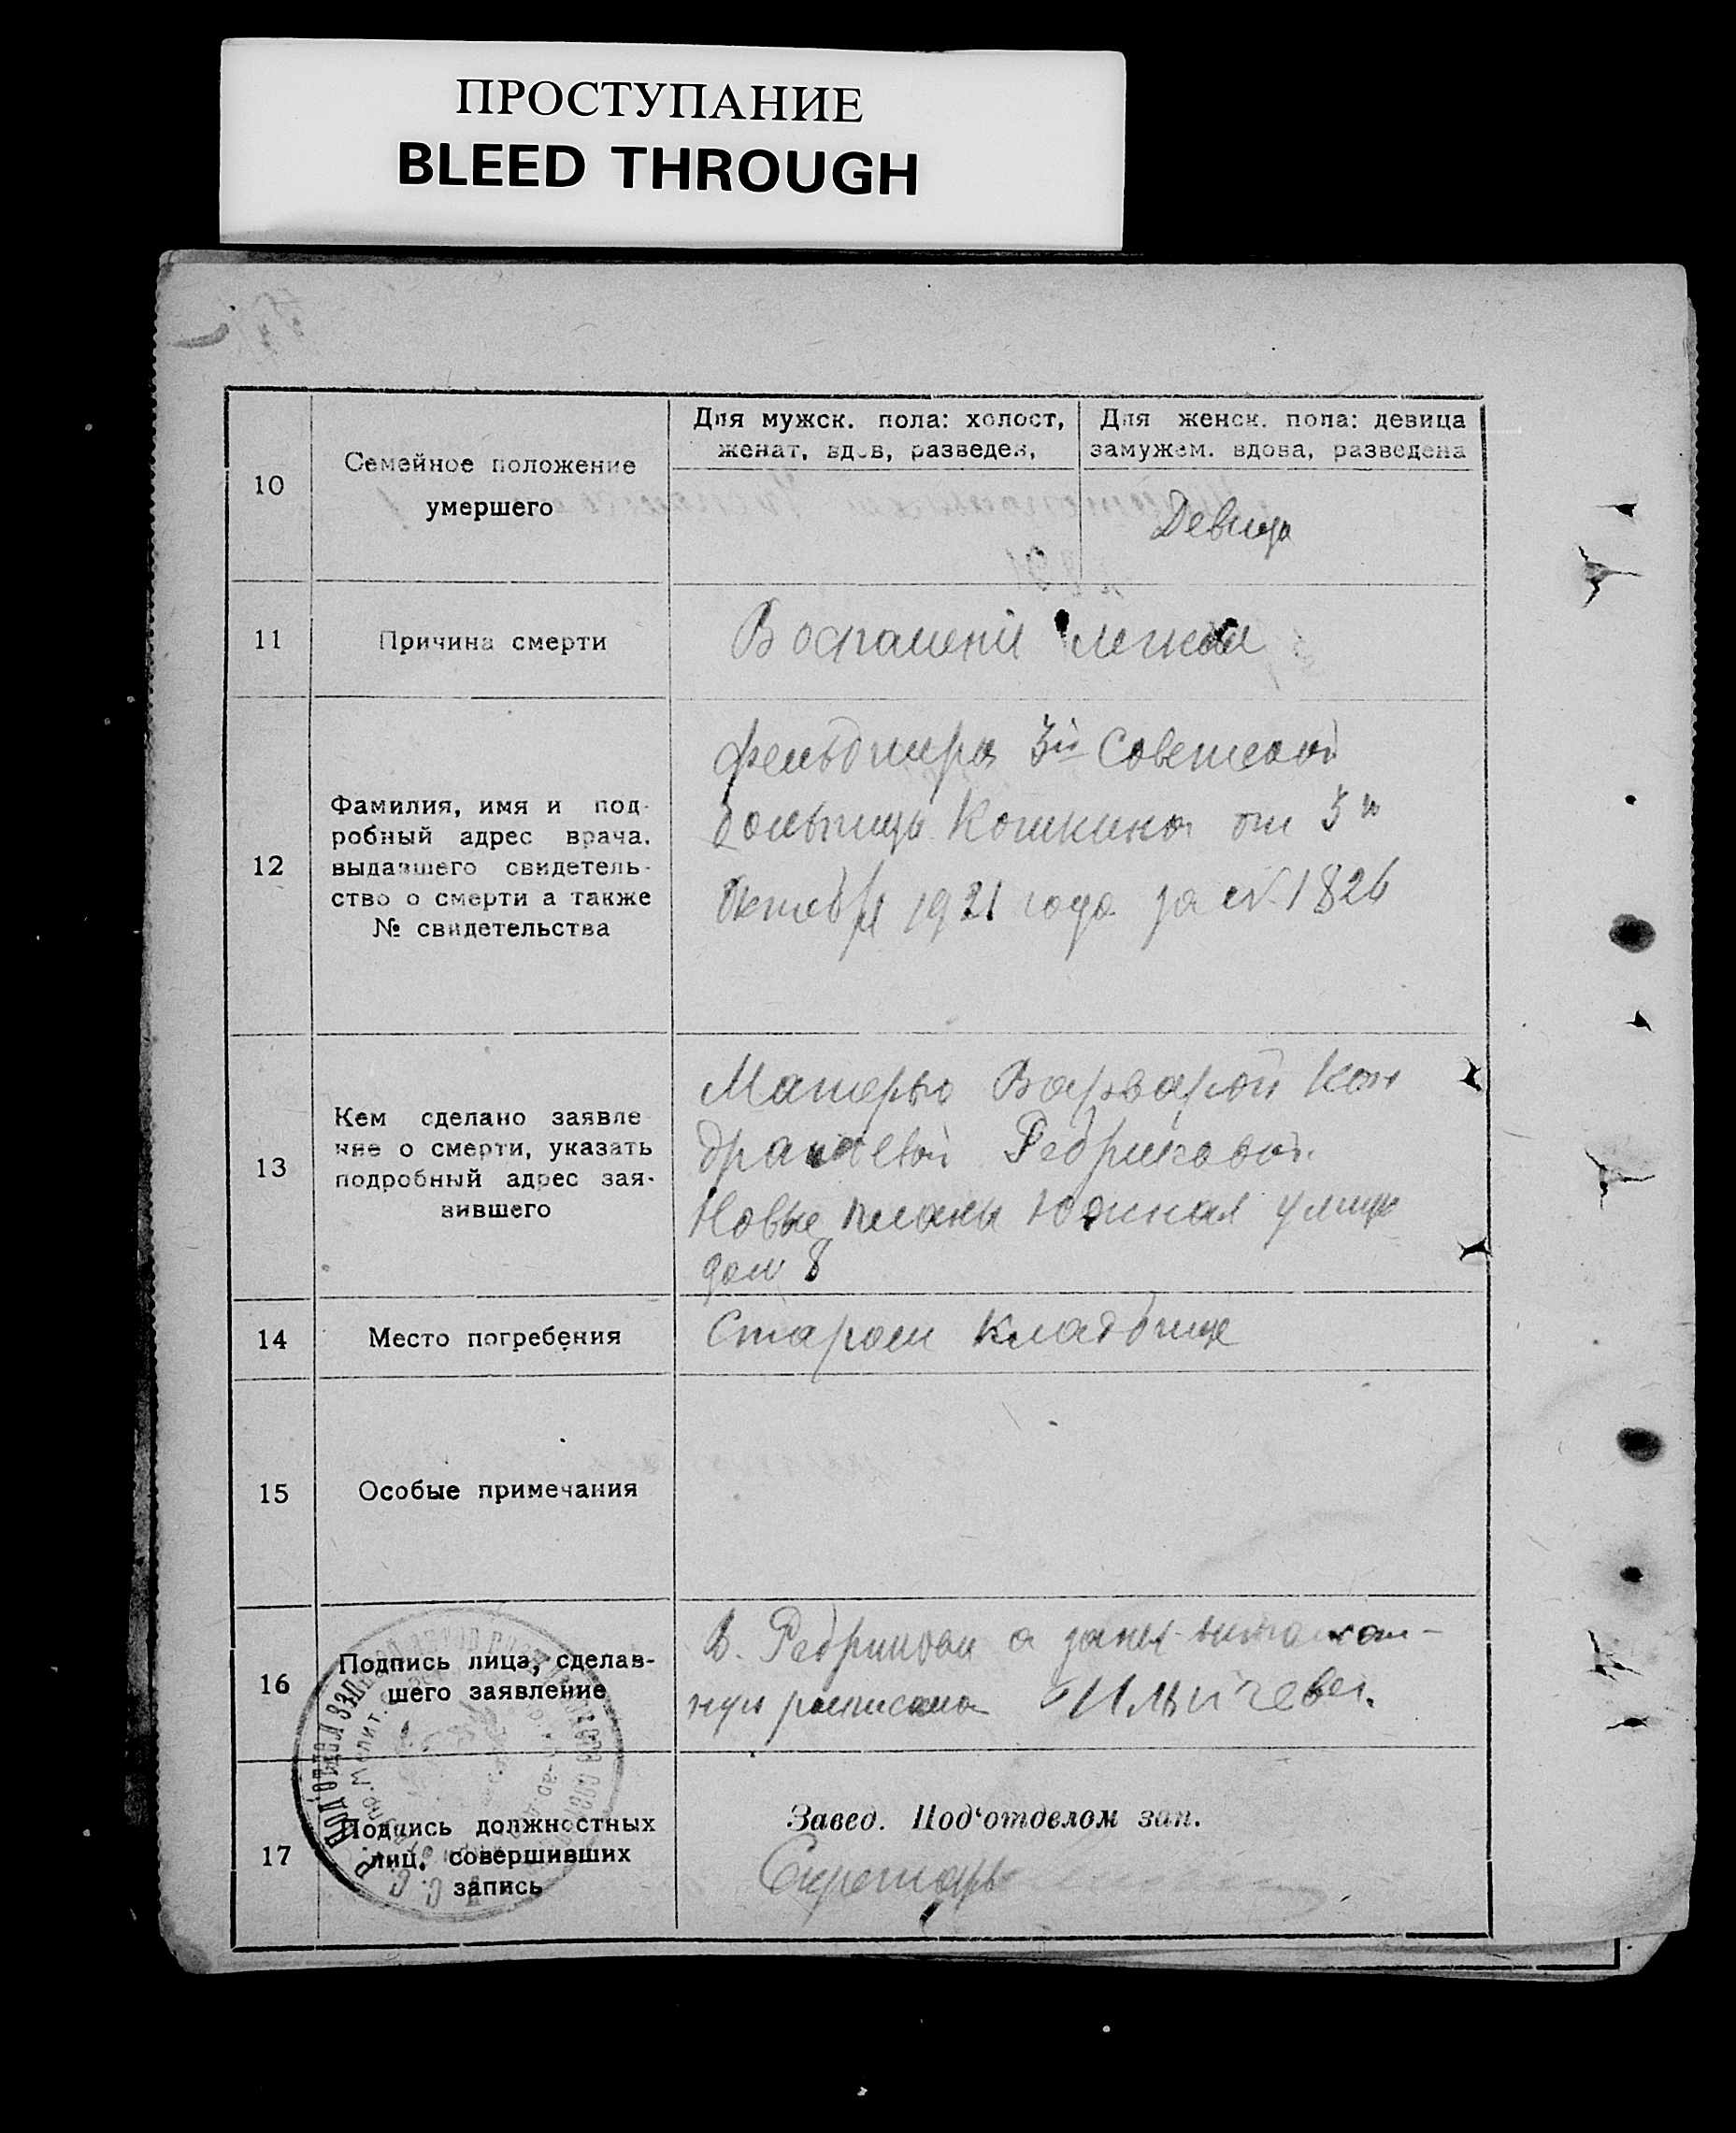 ПРОСТУПАНИЕ
BLEED THROUGH
Для мужск. пола: холост,
женат, вдов, разведен,
Для женск. пола: девица
замужем. вдова, разведена
10
Семейное положение
умершего
Девица
11
Причина смерти
Воспаления легких
12
Фамилия, имя и под-
робный адрес врача.
выдавшего свидетель-
ство о смерти а также
№ свидетельства
фельдшера 3й Советской
больницы Кошкина от 5го
Октября 1921 года за № 1826
13
Кем сделано заявле
ние о смерти, указать
подробный адрес зая-
вившего
Матерью Варварой Кон
дратьевой Редриковой.
Новые планы Южная улица
дом 8
14
Место погребения
Старом кладбище
15
Особые примечания
16
Подпись лица, сделав-
шего заявление
В. Редрикова а за
расписался Ильичева.
17
Подпись должностных
лиц, совершивших
запись
Завед. Под‘отделом зап.
Секретарь